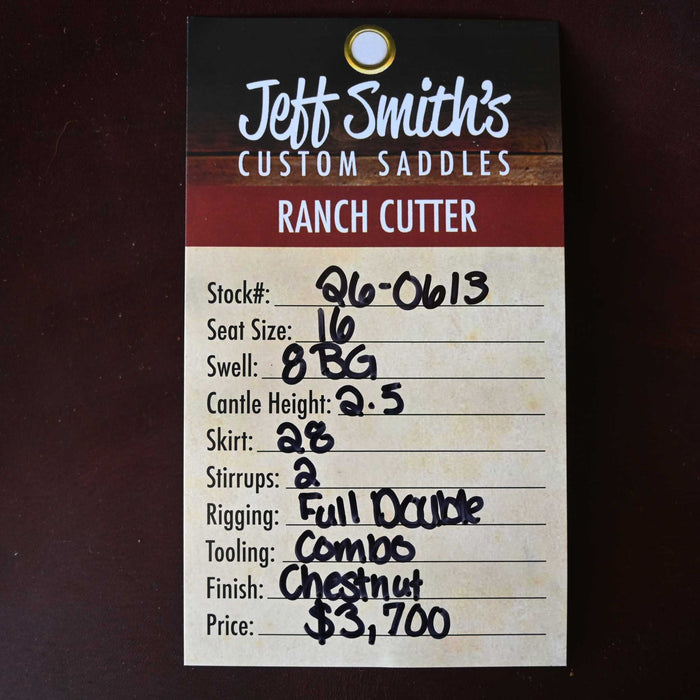 Jeff Smith's
CUSTOM SADDLES
RANCH CUTTER
Stock#: 26-0613
Seat Size: 16
Swell: 8 BG
Cantle Height: 2.5
Skirt: 28
Stirrups: 2
Rigging: Full Double
Tooling: Combo
Finish: Chestnut
Price: $3,700